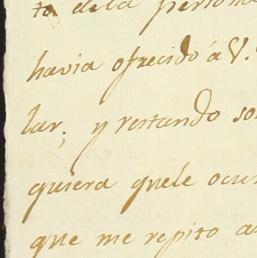 ta dela persona
havia ofrecido á V.
lar; y restando so
quiera quele ocur
que me repito a